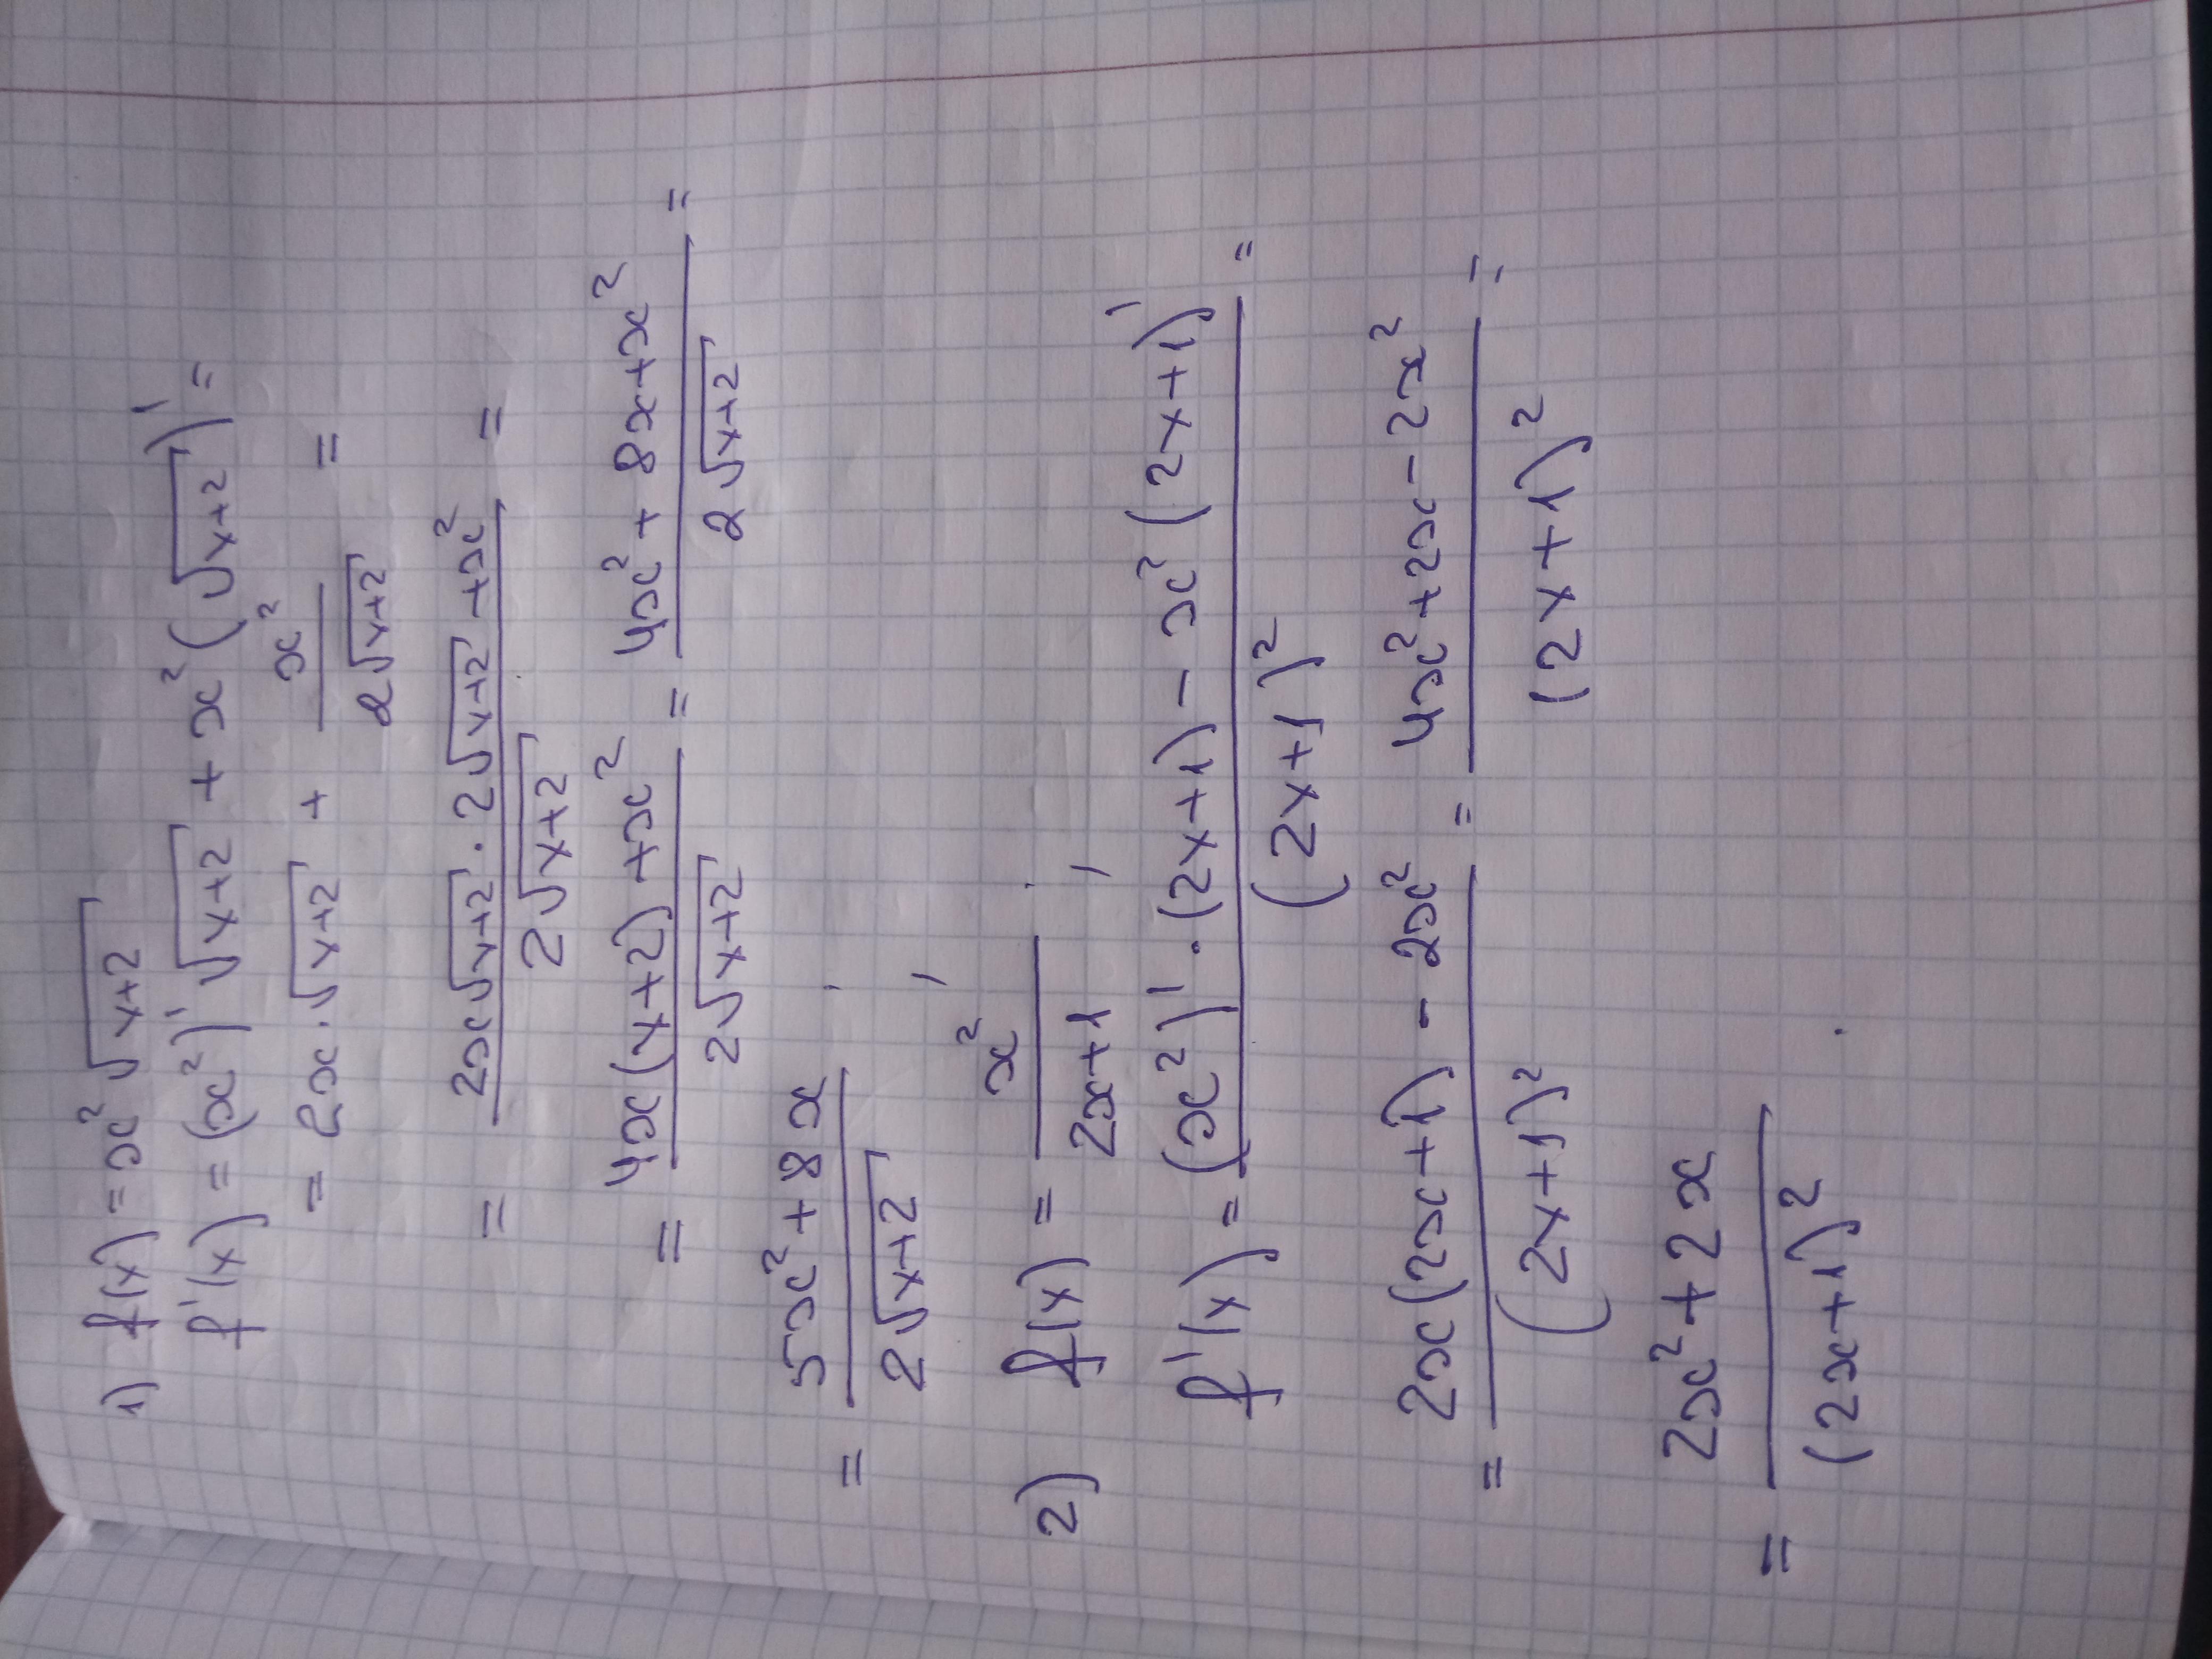 1) f(x) = x²√(x+2)
f'(x) = (x²)'√(x+2) + x²(√(x+2))' =
= 2x·√(x+2) + x²/(2√(x+2)) =
= (2x√(x+2) · 2√(x+2) + x²)/(2√(x+2)) =
= (4x(x+2) + x²)/(2√(x+2)) = (4x² + 8x + x²)/(2√(x+2)) =
= (5x² + 8x)/(2√(x+2))
2) f(x) = x²/(2x+1)
f'(x) = ((x²)' · (2x+1) − x²(2x+1)')/(2x+1)² =
= (2x(2x+1) − 2x²)/(2x+1)² = (4x² + 2x − 2x²)/(2x+1)² =
= (2x² + 2x)/(2x+1)²